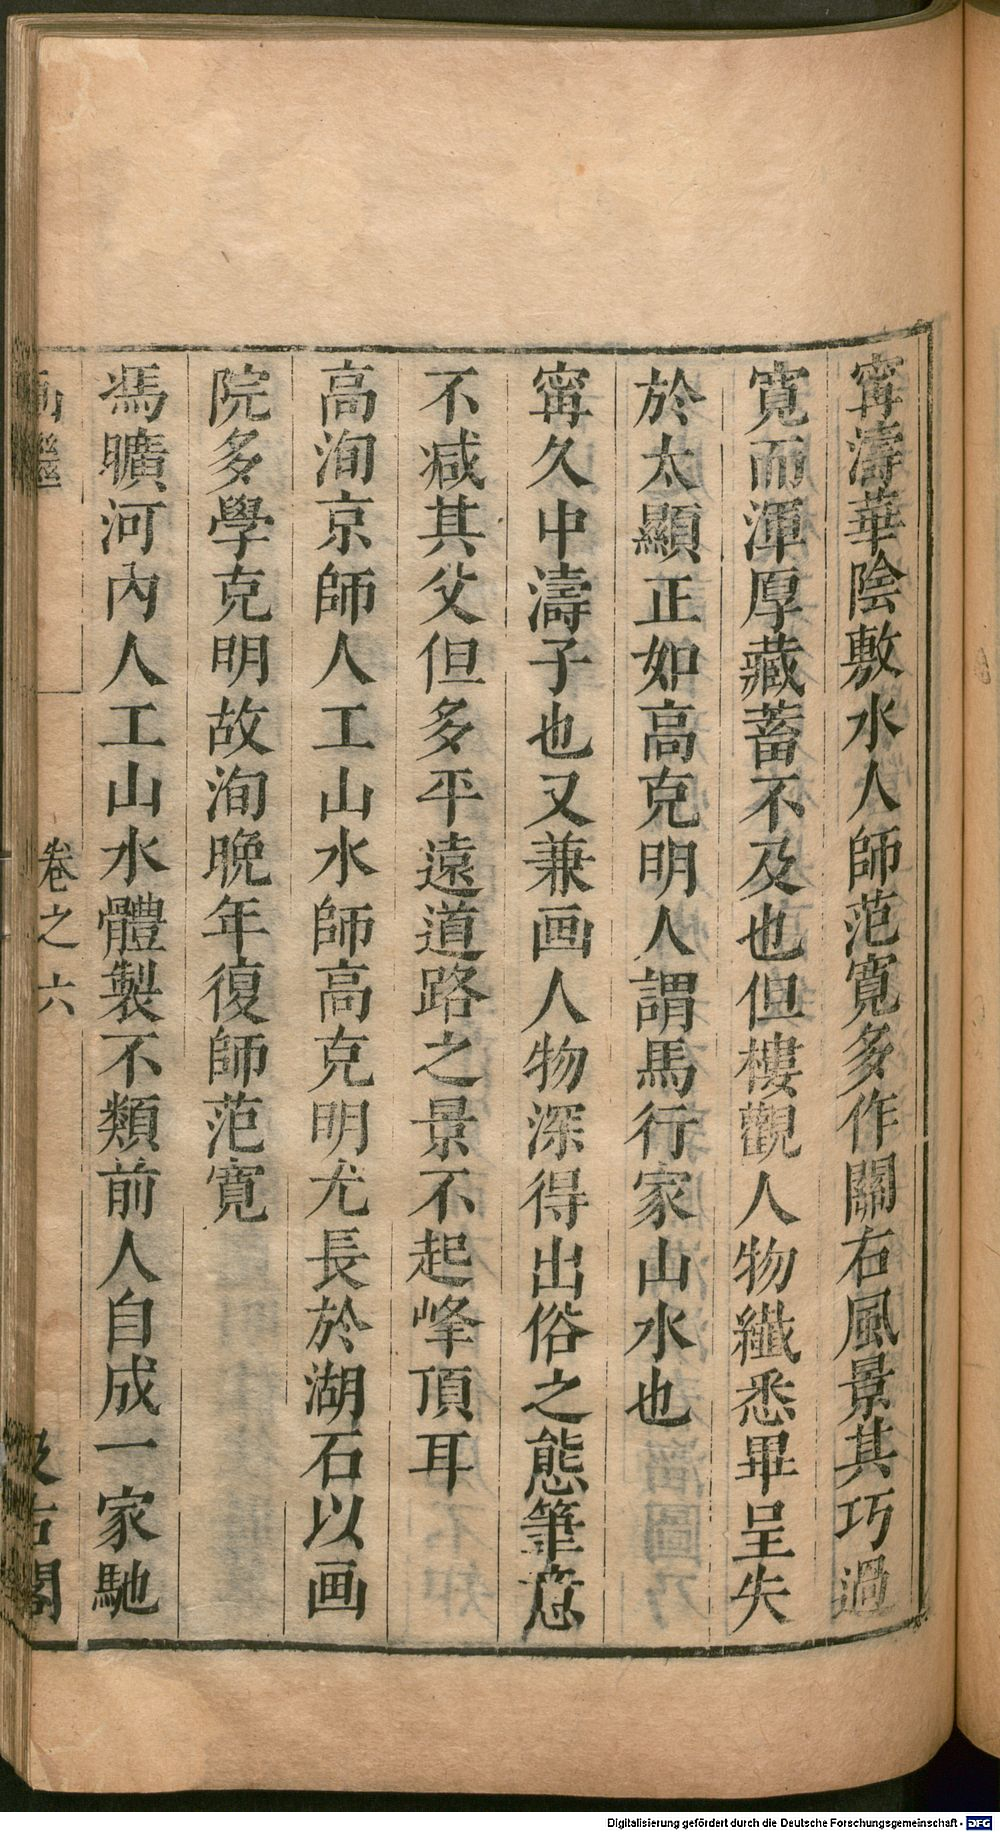 寗濤華陰敷水人師范寬多作關右風景其巧過
寬而渾厚藏蓄不及也但樓觀人物纖悉畢呈失
於太顯正如高克明人謂馬行家山水也
寗久中濤子也又兼画人物深得出俗之態筆意
不减其父但多平遠道路之景不起峰頂耳
高洵京師人工山水師高克明尤長於湖石以画
院多學克明故洵晚年復師范寬
馮曠河內人工山水體製不類前人自成一家馳
画繼
卷之六
汲古閣
Digitalisierung gefördert durch die Deutsche Forschungsgemeinschaft - DFG